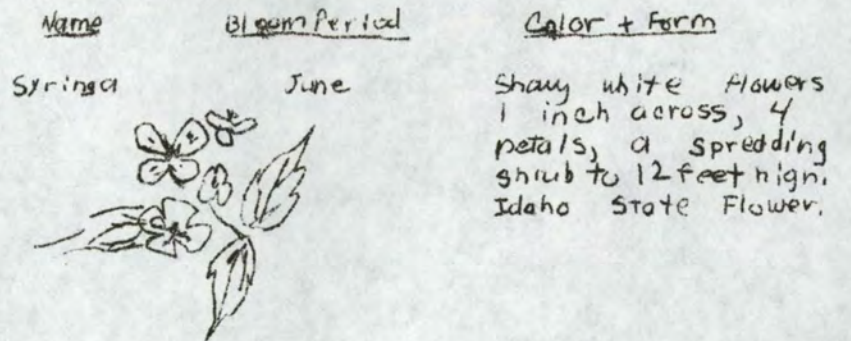 Name Bloom Period Color + Form
Syringa June Showy white flowers
1 inch across, 4
petals, a spredding
shrub to 12 feet high.
Idaho State Flower.